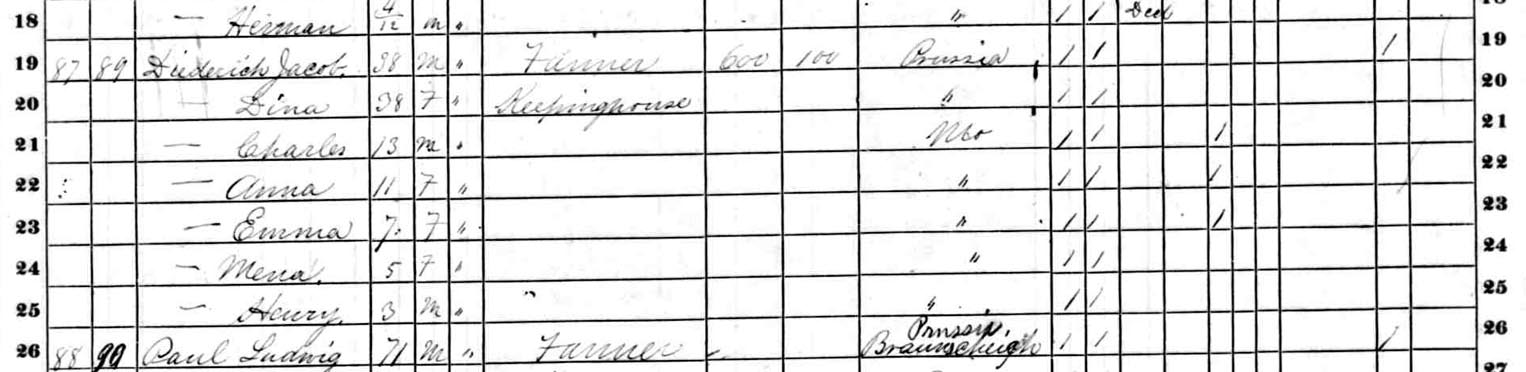 18 — Herman 4/12 m " " / / Decd 18
19 87 89 Diederich Jacob. 38 M " Farmer 600 100 Prussia / / / 19
20 — Dina 38 F " Keepinghouse " / / 20
21 — Charles 13 m " Mo / / / 21
22 — Anna 11 F " " / / / 22
23 — Emma 7 F " " / / / 23
24 — Mena. 5 F " " / / 24
25 — Henry. 3 m " " / / 25
Prussia.
26 88 90 Paul Ludwig 71 m " Farmer Braunschweigh / / / 26
27